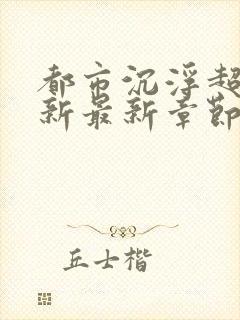 都市沉浮超
新最新章節
丘士楷